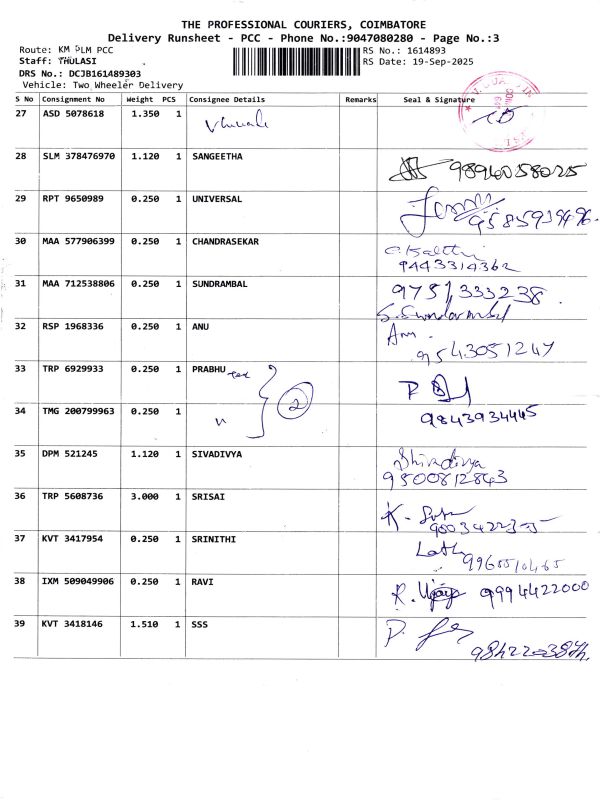 THE PROFESSIONAL COURIERS, COIMBATORE
Delivery Runsheet - PCC - Phone No.:9047080280 - Page No.:3
Route: KM PLM PCC
RS No.: 1614893
Staff: THULASI
RS Date: 19-Sep-2025
DRS No.: DCJB161489303
Vehicle: Two Wheeler Delivery
S No Consignment No Weight PCS Consignee Details Remarks Seal & Signature
27 ASD 5078618 1.350 1
28 SLM 378476970 1.120 1 SANGEETHA
29 RPT 9650989 0.250 1 UNIVERSAL
30 MAA 577906399 0.250 1 CHANDRASEKAR
9443314362
31 MAA 712538806 0.250 1 SUNDRAMBAL 9751333238
S. Sundarambal
32 RSP 1968336 0.250 1 ANU Anu
9543051247
33 TRP 6929933 0.250 1 PRABHU tex 2
34 TMG 200799963 0.250 1 9843934445
35 DPM 521245 1.120 1 SIVADIVYA Shivadivya
9500812843
36 TRP 5608736 3.000 1 SRISAI
37 KVT 3417954 0.250 1 SRINITHI
38 IXM 509049906 0.250 1 RAVI 9994422000
39 KVT 3418146 1.510 1 SSS